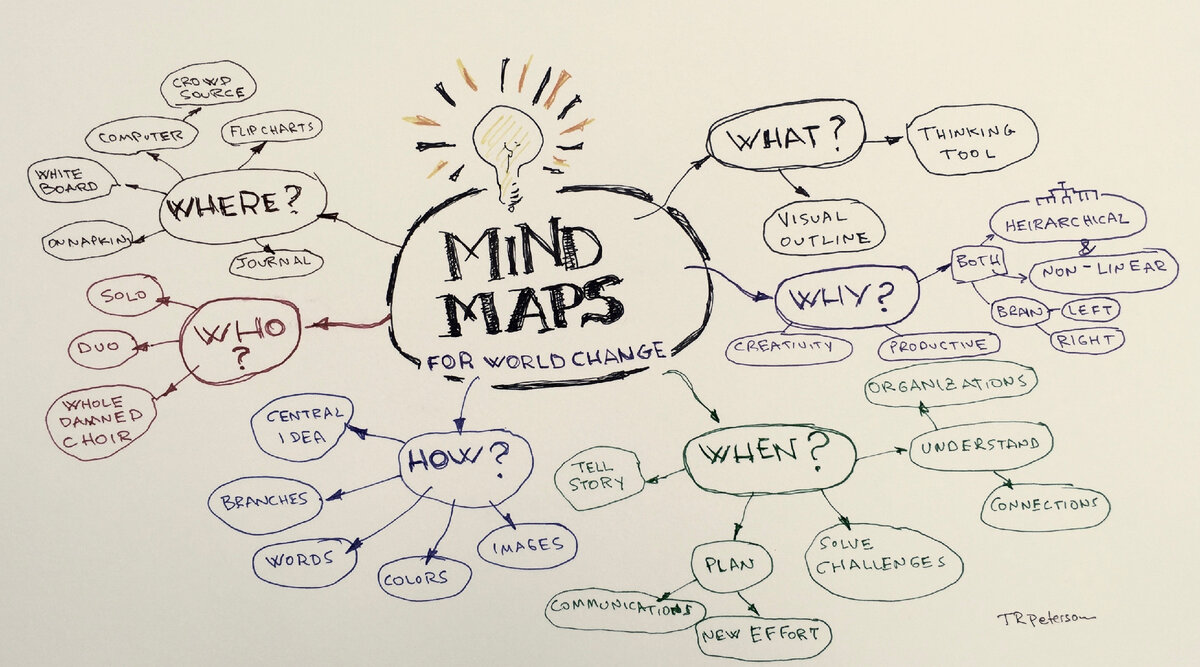 MIND
MAPS
FOR WORLD CHANGE
WHAT?
THINKING
TOOL
VISUAL
OUTLINE
WHY?
BOTH
HEIRARCHICAL
&
NON-LINEAR
BRAIN
LEFT
RIGHT
CREATIVITY
PRODUCTIVE
WHEN?
UNDERSTAND
ORGANIZATIONS
CONNECTIONS
SOLVE
CHALLENGES
PLAN
COMMUNICATIONS
NEW EFFORT
TELL
STORY
HOW?
CENTRAL
IDEA
BRANCHES
WORDS
COLORS
IMAGES
WHO
?
SOLO
DUO
WHOLE
DAMNED
CHOIR
WHERE?
FLIPCHARTS
COMPUTER
CROWD
SOURCE
WHITE
BOARD
ON NAPKIN
JOURNAL
TRPeterson